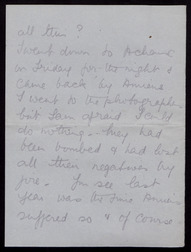 all this?
I went down to
on Friday for the night &
came back by Amiens
I went to the photographer
but I am afraid I could
do nothing – they had
been bombed & had lost
all their negatives by
fire. You see last
year was the time Amiens
suffered so & of course